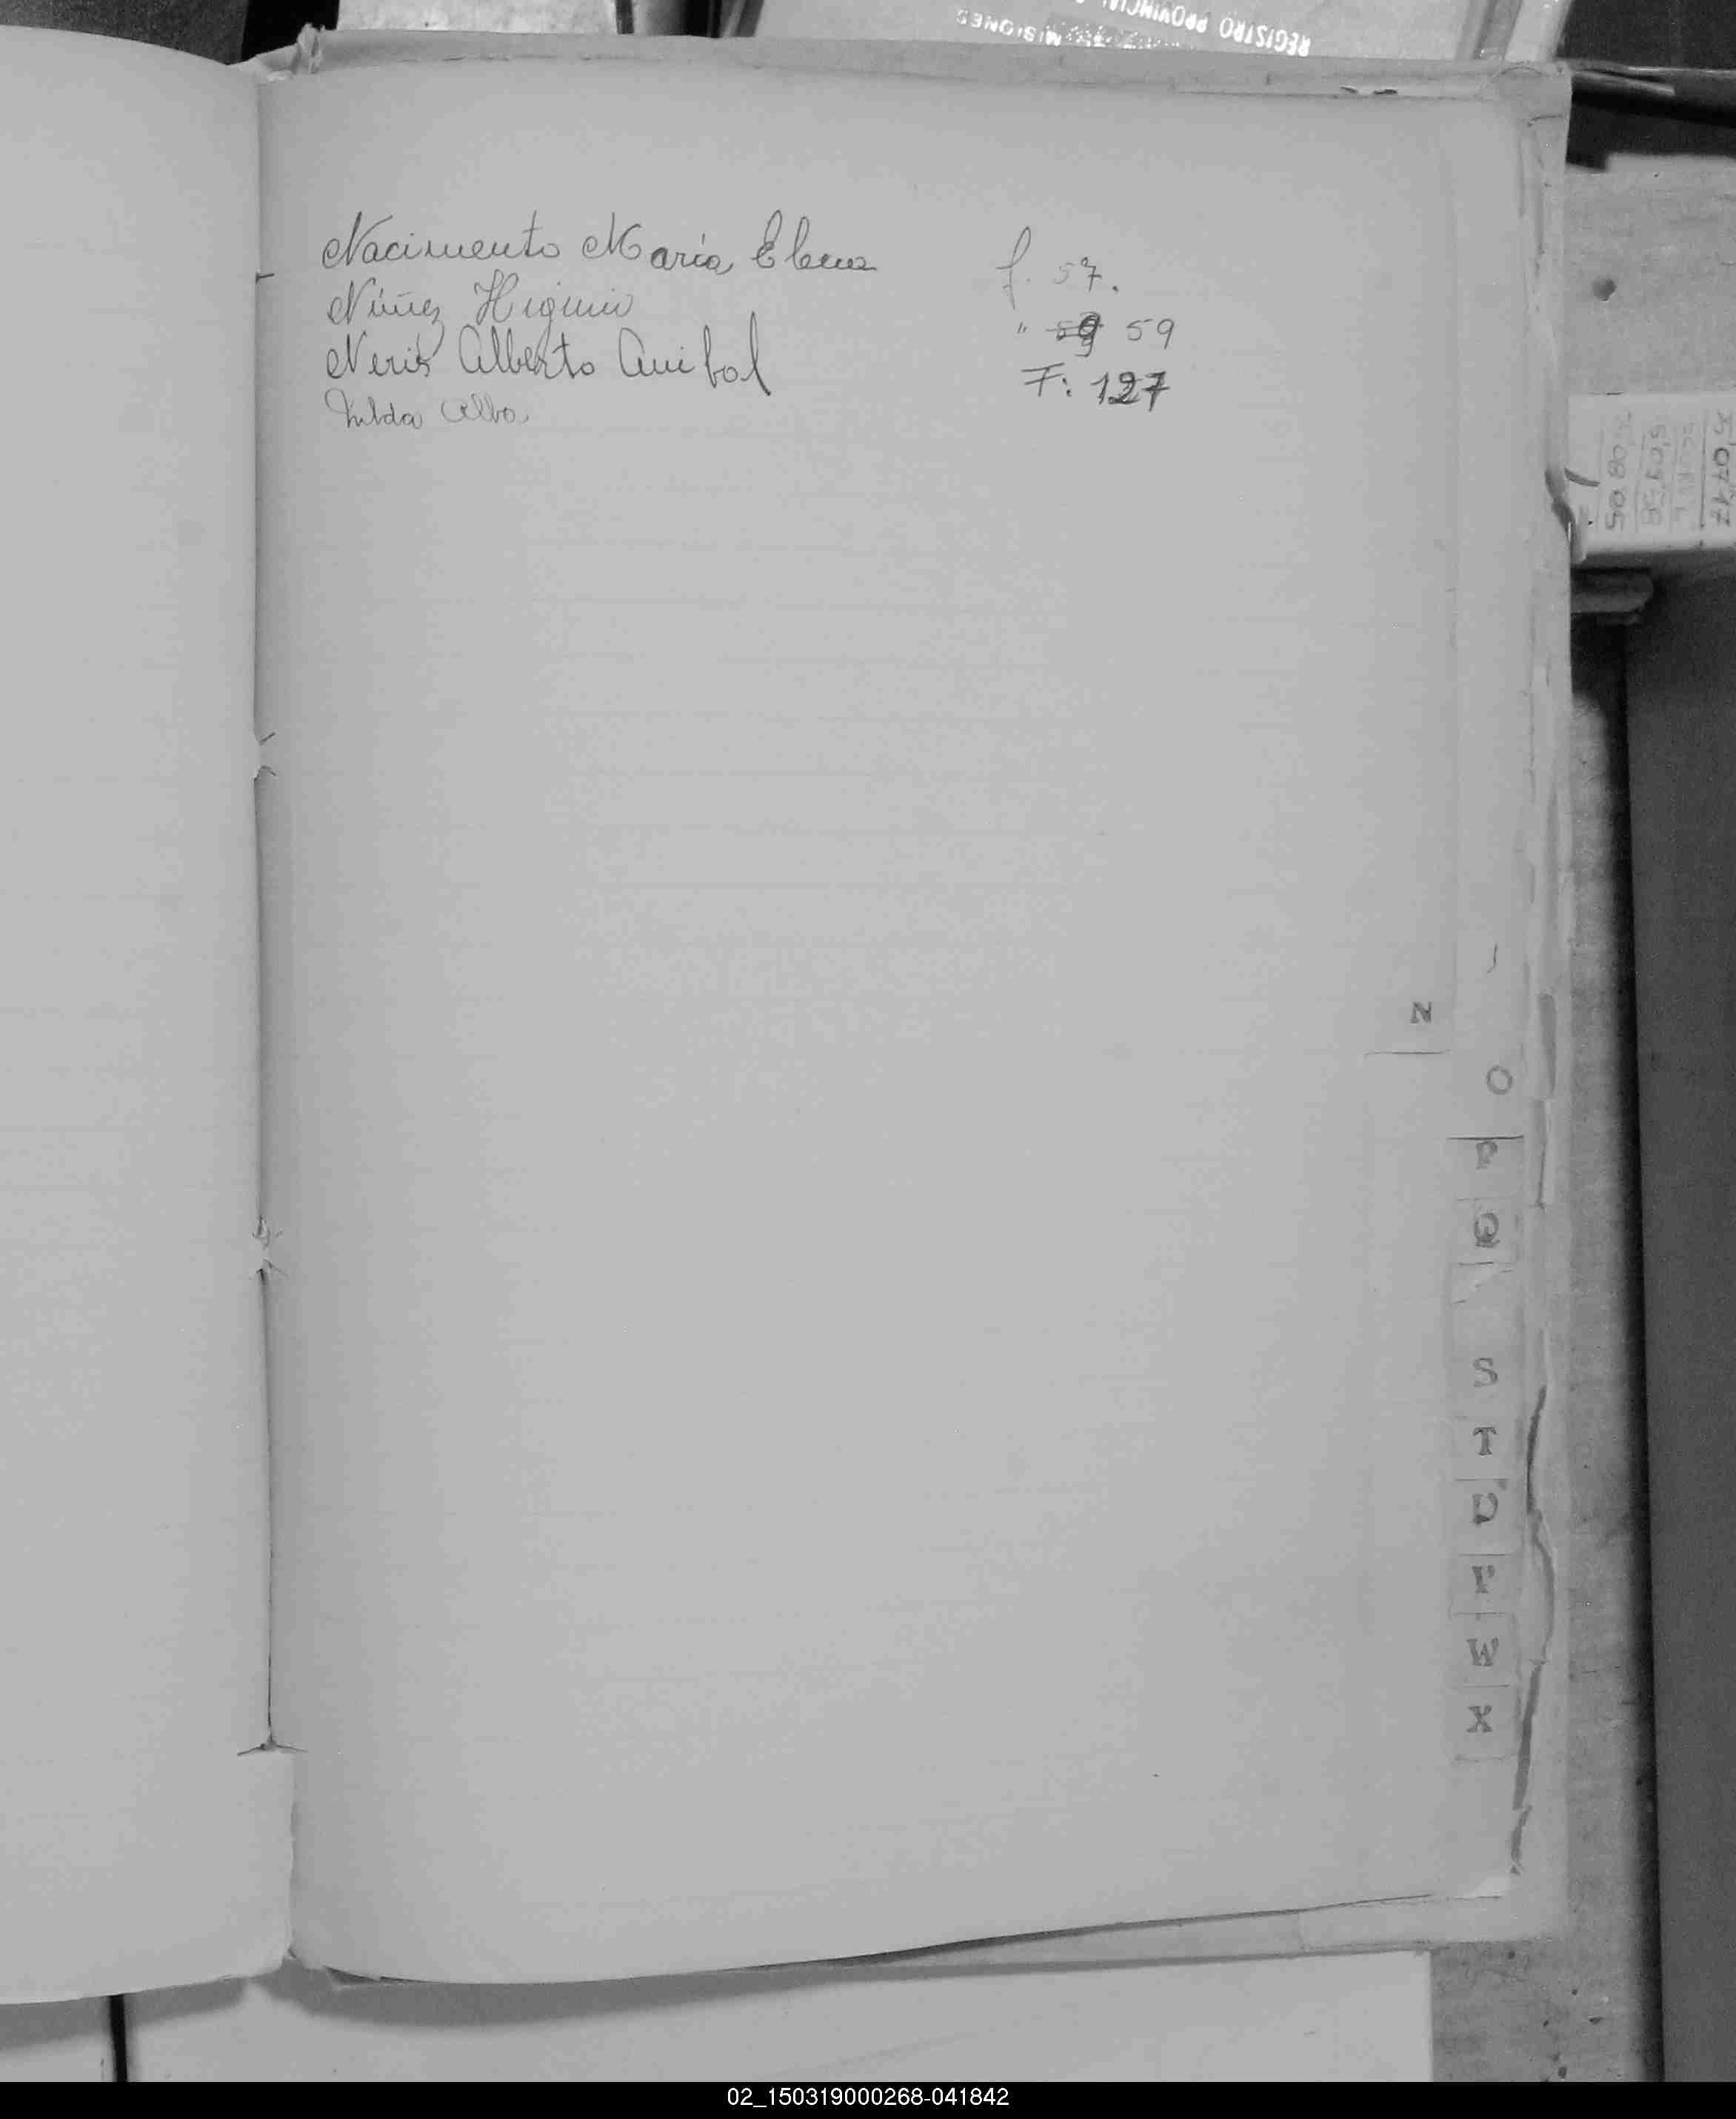 REGISTRO PROVINCIAL
MISIONES
Nacimento María Elena f. 57.
Núñez Higinio " 59 59
Neris Alberto Anibal F: 127
Nilda Alba
N
O
P
Q
S
T
U
V
W
X
02_150319000268-041842